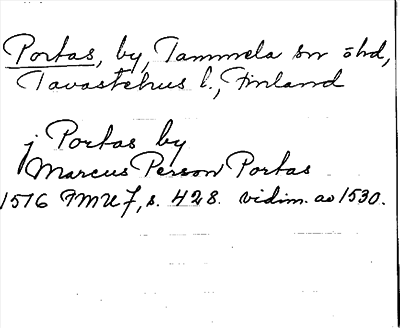 Portas, by, Tammela sn öhd,
Tavastehus l., Finland
j Portas by
Marcus Person Portas
1516 FMU 7, s. 428. vidim. ao 1530.